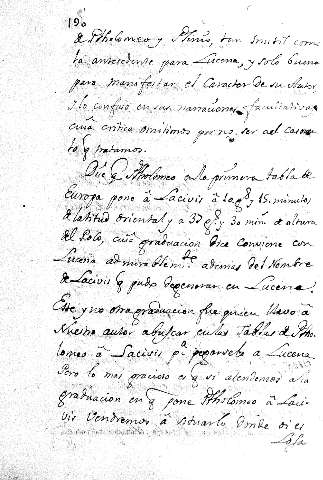 190
de Ptholomeo y Plinio, tan inutil como
la antecedente para Lucena, y solo buena
para manifestar el Caracter de su Autor
y lo confuso en sus narraciones facultativas
cuia critica omitimos por no ser del
to q tratamos.
Que q Ptholomeo a la primera tabla de
Europa pone â Lacivis â 10 gs y 15. minutos
de latitud oriental, y a 37 gs. y 30 min. de altura
del Polo, cuia graduacion dice conviene con
Lucena admirablemte. ademas del Nombre
de Lacivis q pudo degenerar en Lucena.
Esta y no otra graduacion fue quien llevó à
Nuestro autor a buscar en las Tablas de Ptho
lomeo â Lacivis pa. a Lucena.
Pero lo mas gracioso es q si atendemos a la
graduacion en q pone Ptholomeo â Laci-
vis vendremos â situarlo donde oi es
Loja